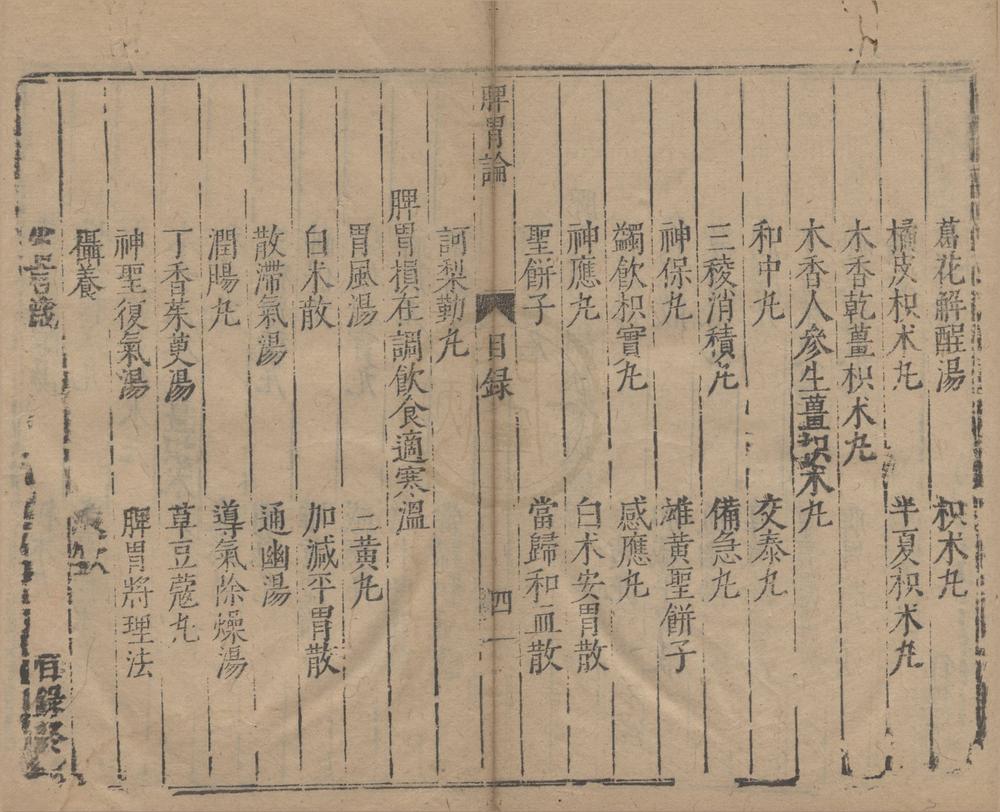 葛花解醒湯　枳术丸
橘皮枳术丸　半夏枳术丸
木香乾薑枳术丸
木香人參生薑枳术丸
和中丸　交泰丸
三稜消積丸　備急丸
神保丸　雄黃聖餅子
蠲飲枳實丸　感應丸
神應丸　白术安胃散
聖餅子　當歸和血散
脾胃論　目録　四
訶梨勒丸
脾胃損在調飲食適寒溫
胃風湯　二黃丸
白术散　加減平胃散
散滯氣湯　通幽湯
潤腸丸　導氣除燥湯
丁香茱萸湯　草豆蔻丸
神聖復氣湯　脾胃將理法
攝養
言箴　目録終